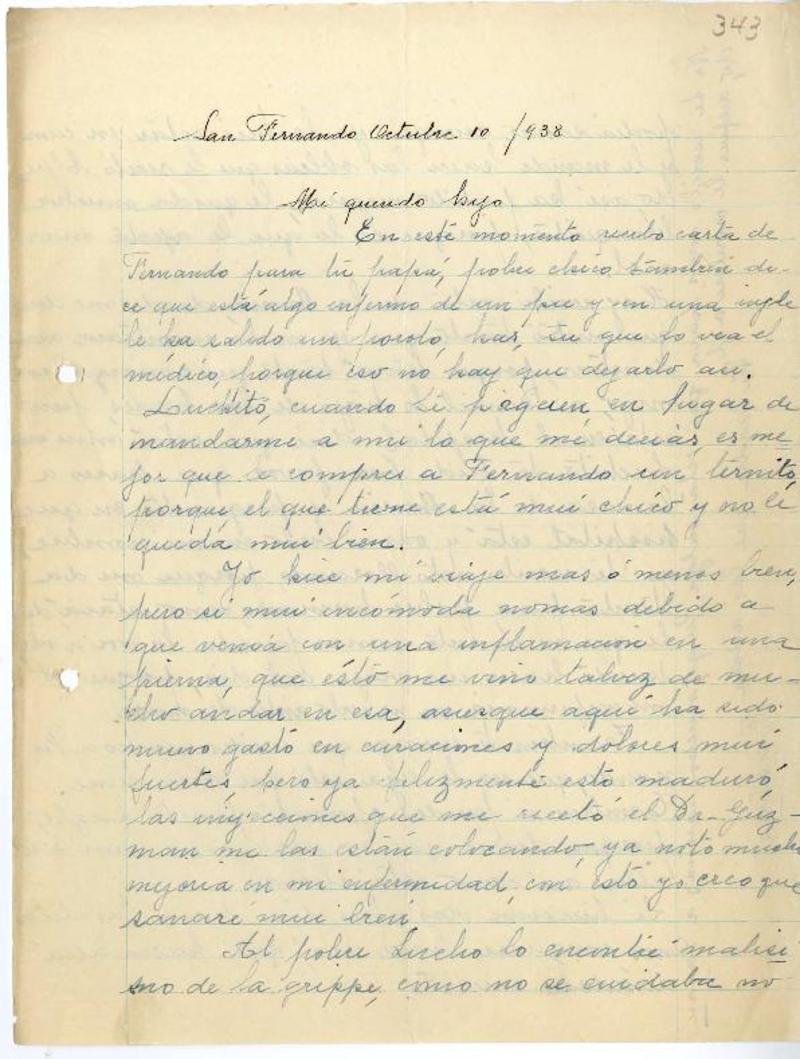 343
San Fernando Octubre 10 /938
Mi querido hijo
En esté momento recibo carta de
Fernando para tú papá, pobre chico tambien di-
ce que está algo enfermo de un pie y en una ingle
le ha salido un poroto, haz, tú que lo vea el
médico, porque eso no hay que dejarlo asi.
Luchito, cuando té paguen en lugar de
mandarme a mi lo que mé decias, es me
jor que le compres a Fernando un ternito,
porque el que tiene está mui chico y no lé
queda mui bien.
Yo hice mi viaje mas ó menos bien,
pero si mui incómoda nomas debido a
que venia con una inflamación en una
pierna, que ésto me vino talvez de mu-
cho andar en esa, asiesque aquí ha sido
nuevo gasto en curaciones y dolores mui
fuertes, pero ya felizmente esto maduró,
las inyecciones que me recetó el Dr- Guz-
man me las están colocando, ya noto mucha
mejoria en mi enfermedad, con esto yo creo que
sanaré mui bien.
Al pobre Lucho lo encontré malisi
mo de la grippe, como no se cuidaba no